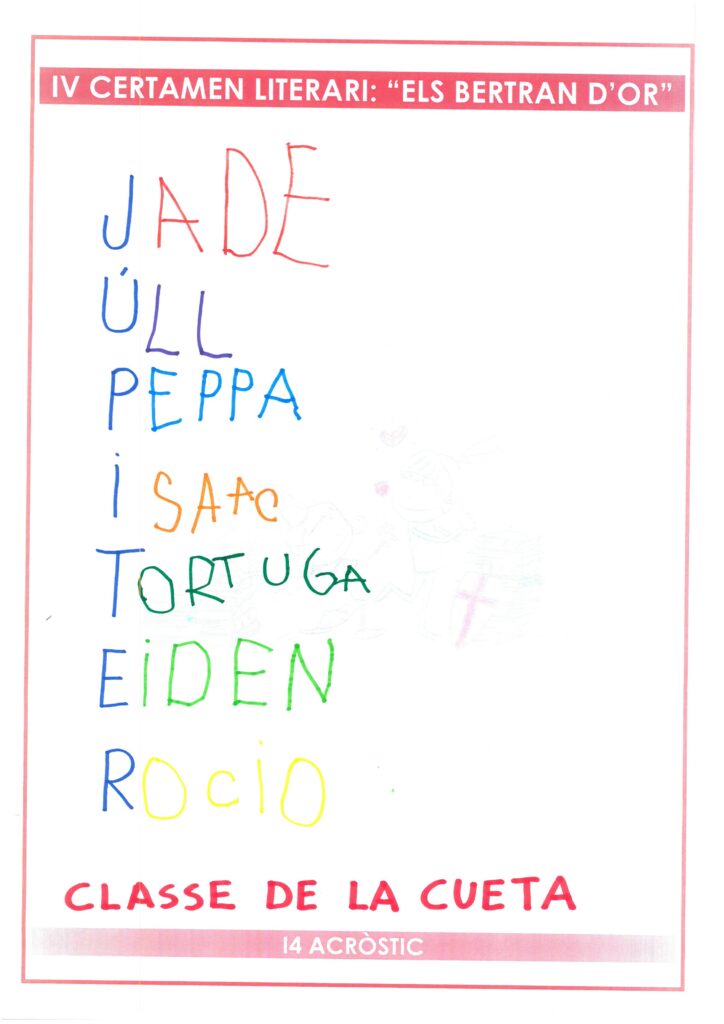 IV CERTAMEN LITERARI: “ELS BERTRAN D’OR”
JADE
ÚLL
PEPPA
iSAAC
TORTUGA
EiDEN
ROCiO
CLASSE DE LA CUETA
I4 ACRÒSTIC